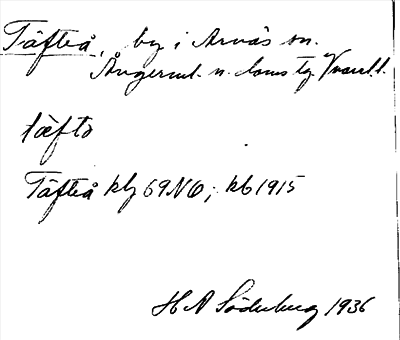 Täfteå, by i Arnäs sn.
Ångerml. n. doms tg. Y västl.
täftɔ
Täfteå kbl 69NO; kb 1915
H A Söderberg 1936